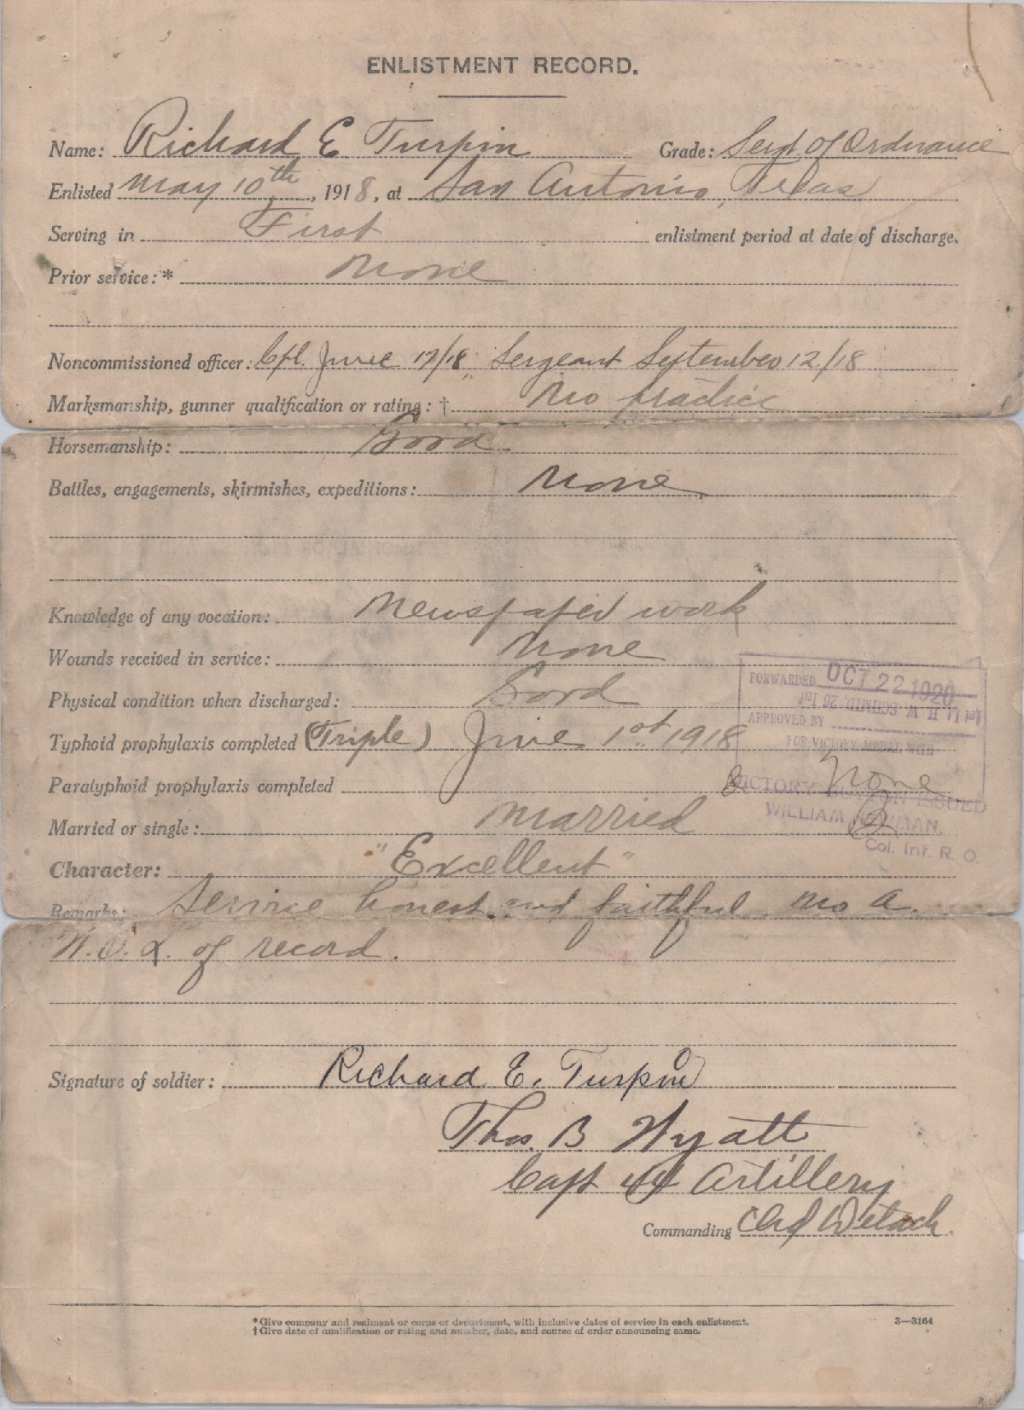 ENLISTMENT RECORD.
Name: Richard E Turpin Grade: Sergt of Ordnance
Enlisted May 10th, 1918, at San Antonio, Texas
Serving in First enlistment period at date of discharge.
Prior service:* None
Noncommissioned officer: Cpl. June 17/18 Sergeant September 12/18
Marksmanship, gunner qualification or rating: † No practice
Horsemanship: Good
Battles, engagements, skirmishes, expeditions: None
Knowledge of any vocation: Newspaper work
Wounds received in service: None
Physical condition when discharged: Good
Typhoid prophylaxis completed (Triple) June 1st 1918
Paratyphoid prophylaxis completed None
Married or single: Married
Character: "Excellent"
Remarks: Service honest and faithful no A.
W.O.L. of record.
FORWARDED OCT 22 1920
H W SCHMID, 26 Inf
APPROVED BY
FOR VICTORY MEDAL WITH
VICTORY BUTTON ISSUED
WILLIAM
Col. Inf. R. O.
Signature of soldier: Richard E. Turpin
Thos. B Wyatt
Capt Artillery
Commanding Ord Detach.
*Give company and regiment or corps or department, with inclusive dates of service in each enlistment.
†Give date of qualification or rating and number, date, and source of order announcing same.
3—3164